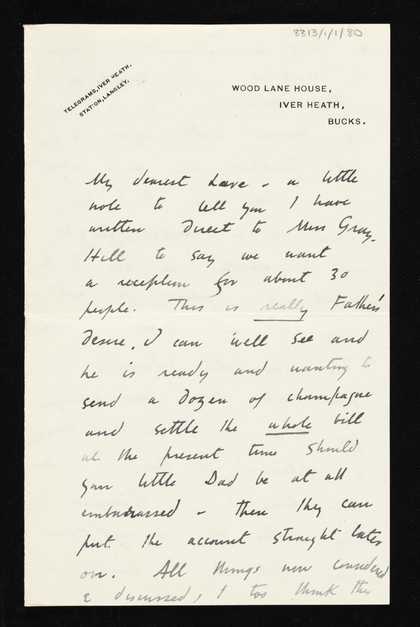 8813/1/1/80
TELEGRAMS, IVER HEATH.
STATION, LANGLEY.
WOOD LANE HOUSE,
IVER HEATH,
BUCKS.
My dearest Love - a little
note to tell you I have
written Direct to Miss Gray-
Hill to say we want
a reception for about 30
people. This is really Father's
Desire, I can well see and
he is ready and wanting to
send a Dozen of champagne
and settle the whole bill
at the present time should
your little Dad be at all
embarrassed - then they can
put the account straight later
on. All things now considered
& discussed, I too think this